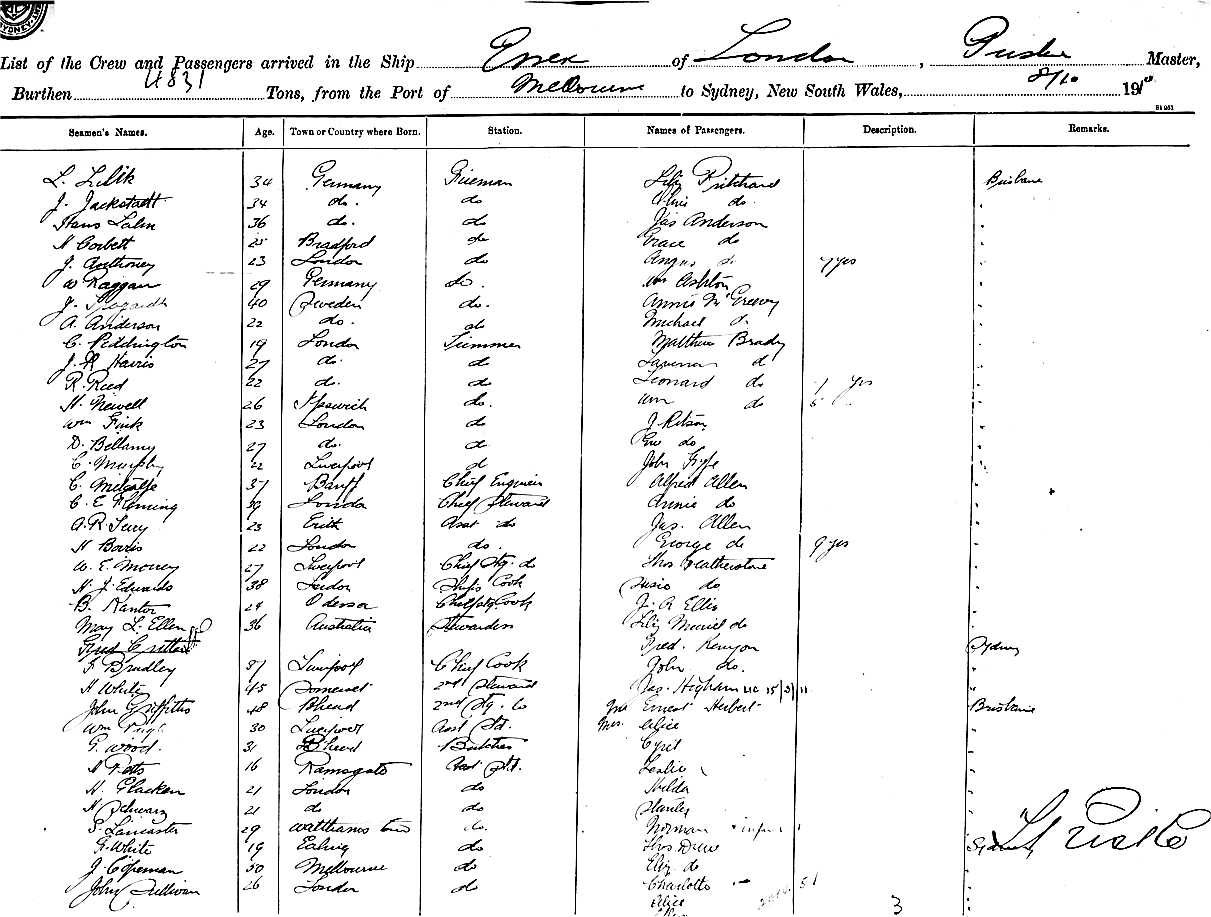 SYDNEY
List of the Crew and Passengers arrived in the Ship Essex of London, Master,
Burthen 4831 Tons, from the Port of Melbourne to Sydney, New South Wales, 8/10 191
Seamen's Names. Age. Town or Country where Born. Station. Names of Passengers. Description. Remarks.
34 Germany Fireman Pritchard Brisbane
J. Jackstadt 34 do. do do. "
Hans Lahn 36 do. do Jas Anderson "
H Corbett 25 Bradford do Grace do "
J. Anthoney 23 London do Angus do 7 yrs "
W Raggan 29 Germany do. Wm Ashton "
J. 40 Sweden do. Annie McGreevy "
A. Anderson 22 do. do Michael "
C. Peddington 19 London Trimmer Matthew Brady "
J. H Harris 27 do. do "
R. Reed 22 do. do Leonard do yrs "
H. Newell 26 Ipswich do. Wm do "
Wm Fink 23 London do J. Ritson "
D. Bellamy 27 do. do do "
C. Murphy 22 Liverpool d John Fyfe "
C. Metcalfe 37 Banff Chief Engineer Alfred Allen "
C. E Fleming 39 London Chief Steward Annie do "
A. R. 23 Erith Asst do Jas. Allen "
H Borris 22 London do. George do 9 yrs "
W. E. Morrey 27 Liverpool Chief Stg. do Thos Featherstone "
H. J. Edwards 38 London Ships Cook Susie do "
B. Kantor 24 Odessa Cook J. A Ellis "
May L. Ellen 36 Australia Stewardess Muriel do "
Fred. Kenyon Sydney
F Bradley 37 Liverpool Chief Cook John do. "
H White 45 Somerset 2nd Steward Jas. Higham "
John Griffiths 48 B'head 2nd Stg. do Ernest Herbert Brisbane
Wm 30 Liverpool Asst Std. Mrs. Alice "
G. Wood. 31 B'head Butcher Cyril "
16 Ramsgate Asst Std. Leslie "
H. Flacken 21 London do Hilda "
H Schwarz 21 do do Stanley "
S. Lancaster 29 Walthamstow do. Norman infant "
G. White 19 Ealing do Thos Drew Sydney
J. Copeman 50 Melbourne do Eliz do "
John Sullivan 26 London do Charlotte "
Alice "
3